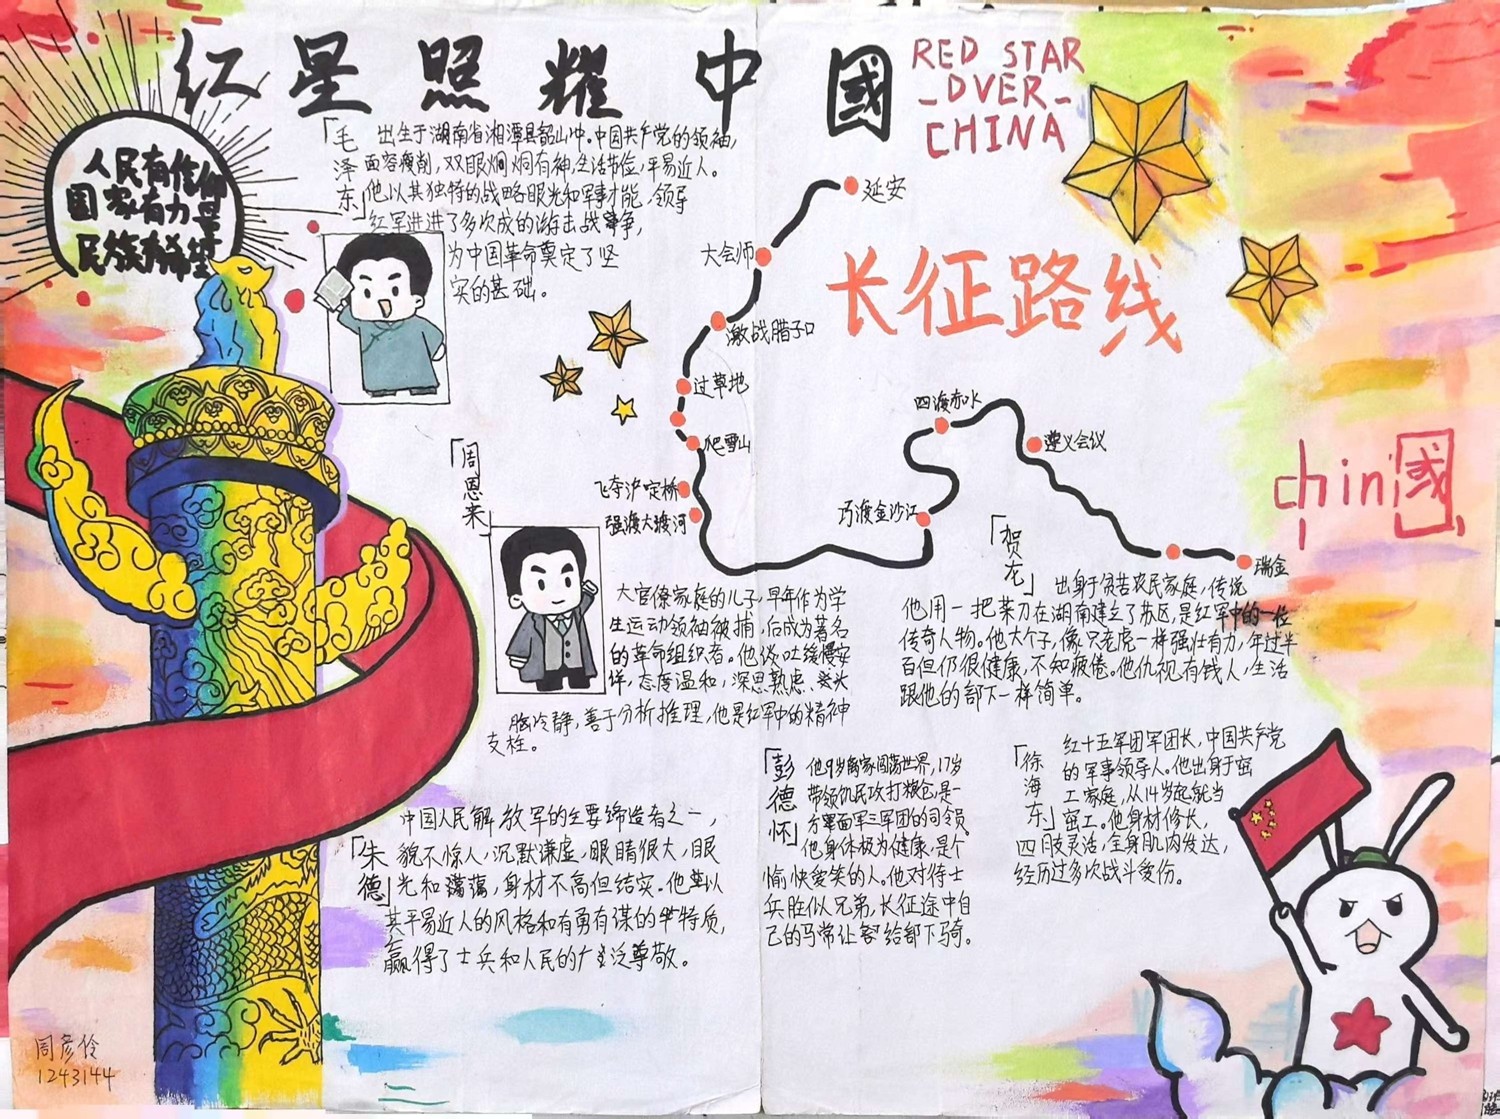 红星照耀中國
RED STAR
-OVER-
CHINA
人民有信仰
国家有力量
民族有希望
「毛泽东」
出生于湖南省湘潭县韶山冲。中国共产党的领袖,
面容瘦削,双眼炯炯有神,生活节俭,平易近人。
他以其独特的战略眼光和军事才能,领导
红军进进了多次成的游击战争,
为中国革命奠定了坚
实的基础。
长征路线
延安
大会师
激战腊子口
过草地
爬雪山
飞夺泸定桥
强渡大渡河
巧渡金沙江
四渡赤水
遵义会议
瑞金
chin国
「周恩来」
大官僚家庭的儿子,早年作为学
生运动领袖被捕,后成为著名
的革命组织者。他谈吐缓慢安
详,态度温和,深思熟虑,头
脑冷静,善于分析推理,他是红军中的精神
支柱。
「贺龙」
出身于贫苦农民家庭,传说
他用一把菜刀在湖南建立了苏区,是红军中的一位
传奇人物。他大个子,像只老虎一样强壮有力,年过半
百但仍很健康,不知疲倦。他仇视有钱人,生活
跟他的部下一样简单。
「朱德」
中国人民解放军的主要缔造者之一,
貌不惊人,沉默谦虚,眼睛很大,眼
光和蔼,身材不高但结实。他以
其平易近人的风格和有勇有谋的特质,
赢得了士兵和人民的广泛尊敬。
「彭德怀」
他9岁离家闯荡世界,17岁
带领饥民攻打粮仓,是一
方面军三军团的司令员。
他身体极为健康,是个
愉快爱笑的人。他对待士
兵胜似兄弟,长征途中自
己的马常让给部下骑。
「徐海东」
红十五军团军团长,中国共产党
的军事领导人。他出身于窑
工家庭,从14岁起就当
窑工。他身材修长,
四肢灵活,全身肌肉发达,
经历过多次战斗受伤。
周彦伶
1243144